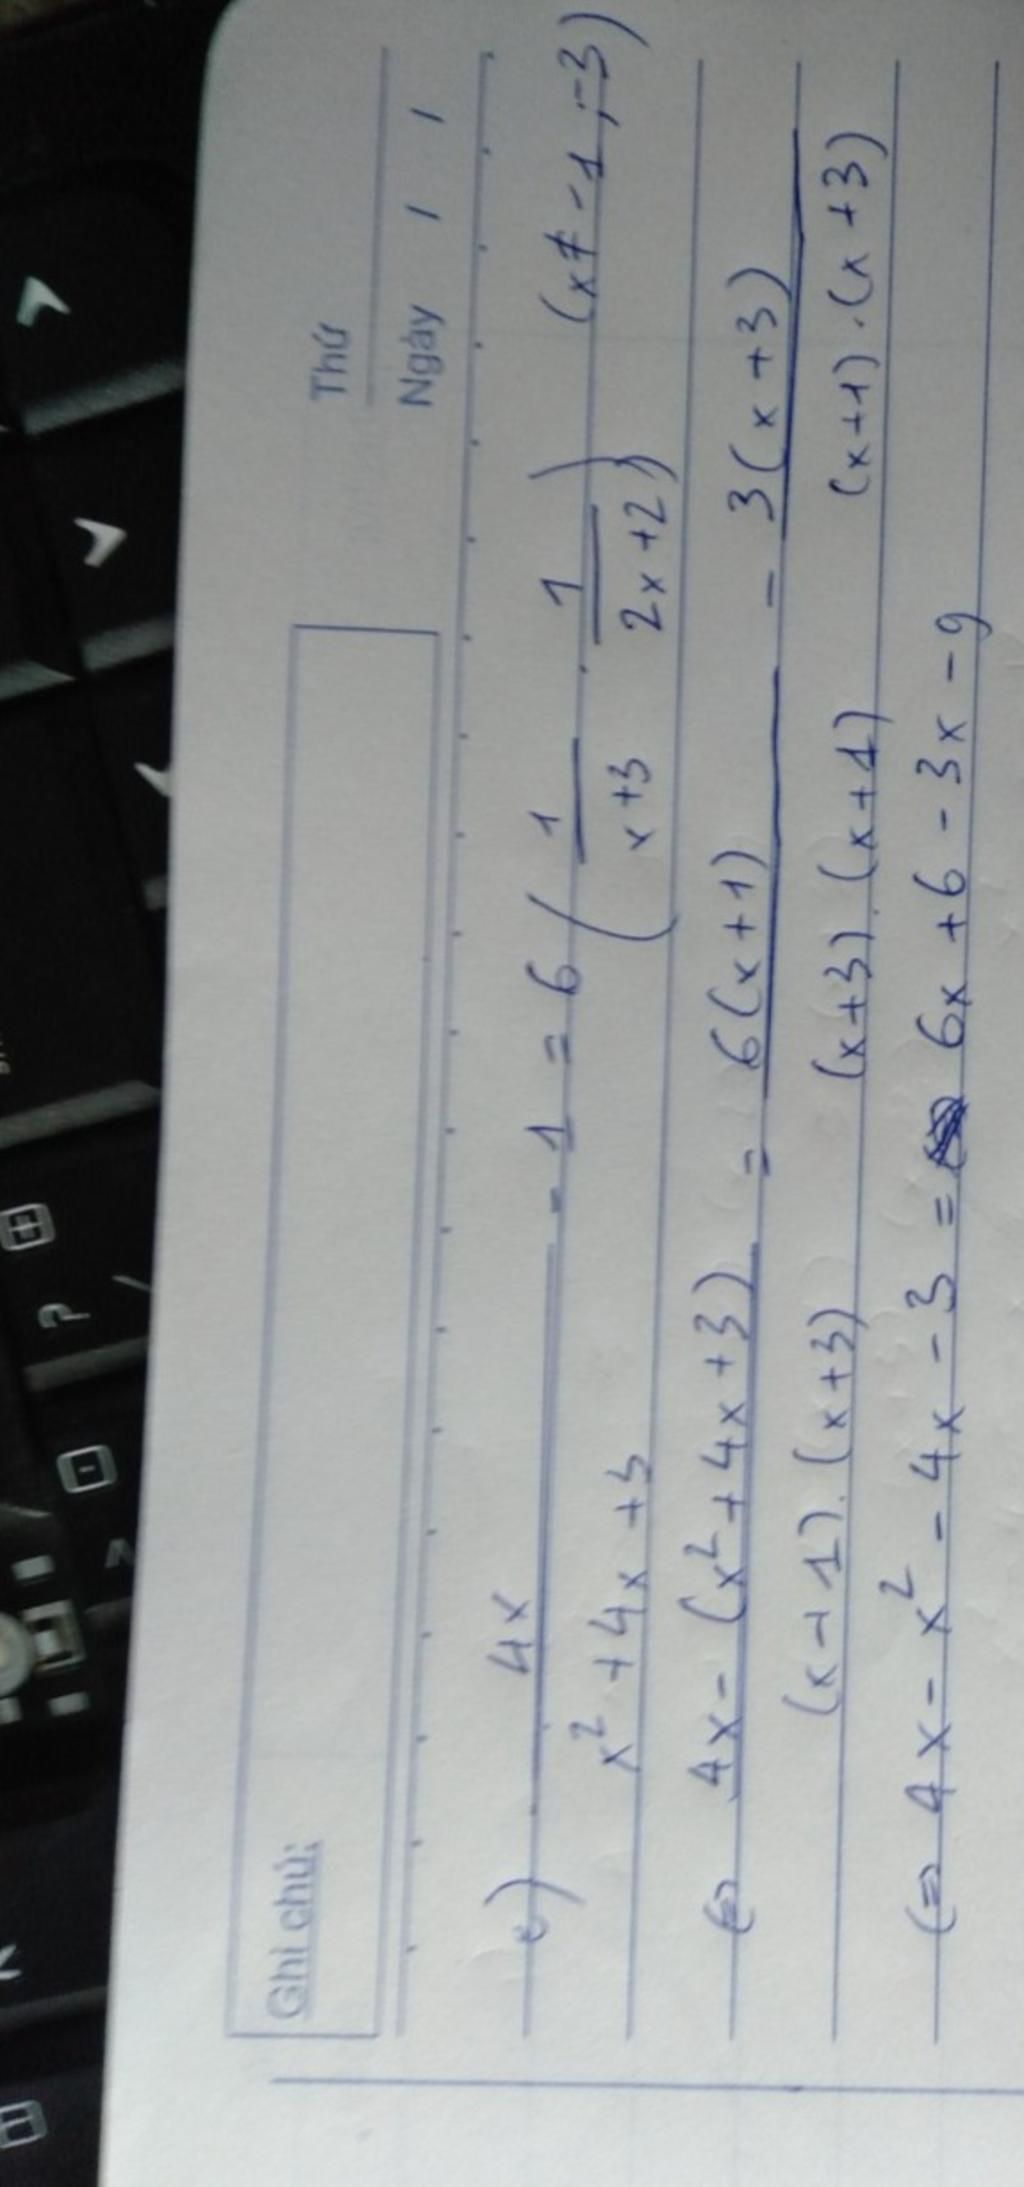 Ghi chú:
Thứ
Ngày / /
e) 4x / (x² + 4x + 3) - 1 = 6 ( 1 / (x+3) . 1 / (2x+2) ) (x ≠ -1 ; -3)
⇔ 4x - (x² + 4x + 3) / (x+1).(x+3) = 6(x+1) / (x+3).(x+1) - 3(x+3) / (x+1).(x+3)
⇔ 4x - x² - 4x - 3 = 6x + 6 - 3x - 9